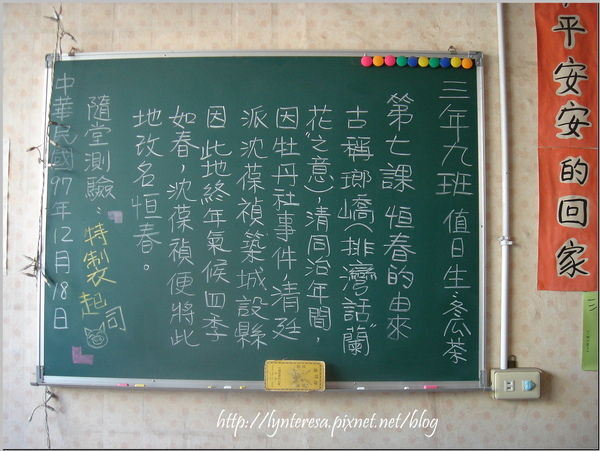 三年九班 值日生:冬瓜茶
第七課 恒春的由來
古稱瑯嶠(排灣話"蘭
花"之意),清同治年間,
因牡丹社事件清廷
派沈葆禎築城設縣
因此地終年氣候四季
如春,沈葆禎便將此
地改名恒春。
隨堂測驗 特製起司
中華民國97年12月18日
平安安的回家
http://lynteresa.pixnet.net/blog